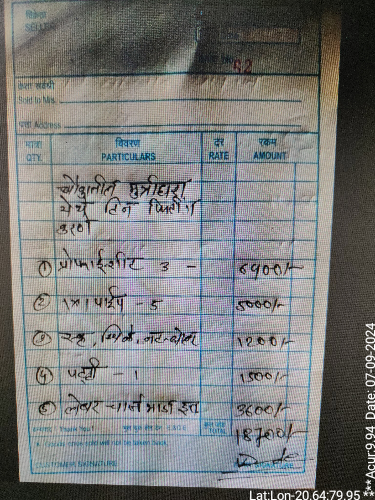 विक्रेता
SELLER
62
Sold to M/s.
पत्ता Address
मात्रा विवरण दर रकम
QTY. PARTICULARS RATE AMOUNT
येथे टिन फिटींग
करणे
① प्रोफाईल शीट 3 - 6900/-
② 1x1 पाईप - 5 5000/-
③ स्क्रु, खिळे, नट-बोल्ट 1200/-
④ पट्टी - 1 1500/-
⑤ लेबर चार्ज 3600/-
Thank You! भूल चूक लेन देन E.& O.E. TOTAL 18700/-
Goods once sold will not be taken back.
CUSTOMER SIGNATURE
Lat:Lon-20.64:79.95***Acur:9.94 Date: 07-09-2024